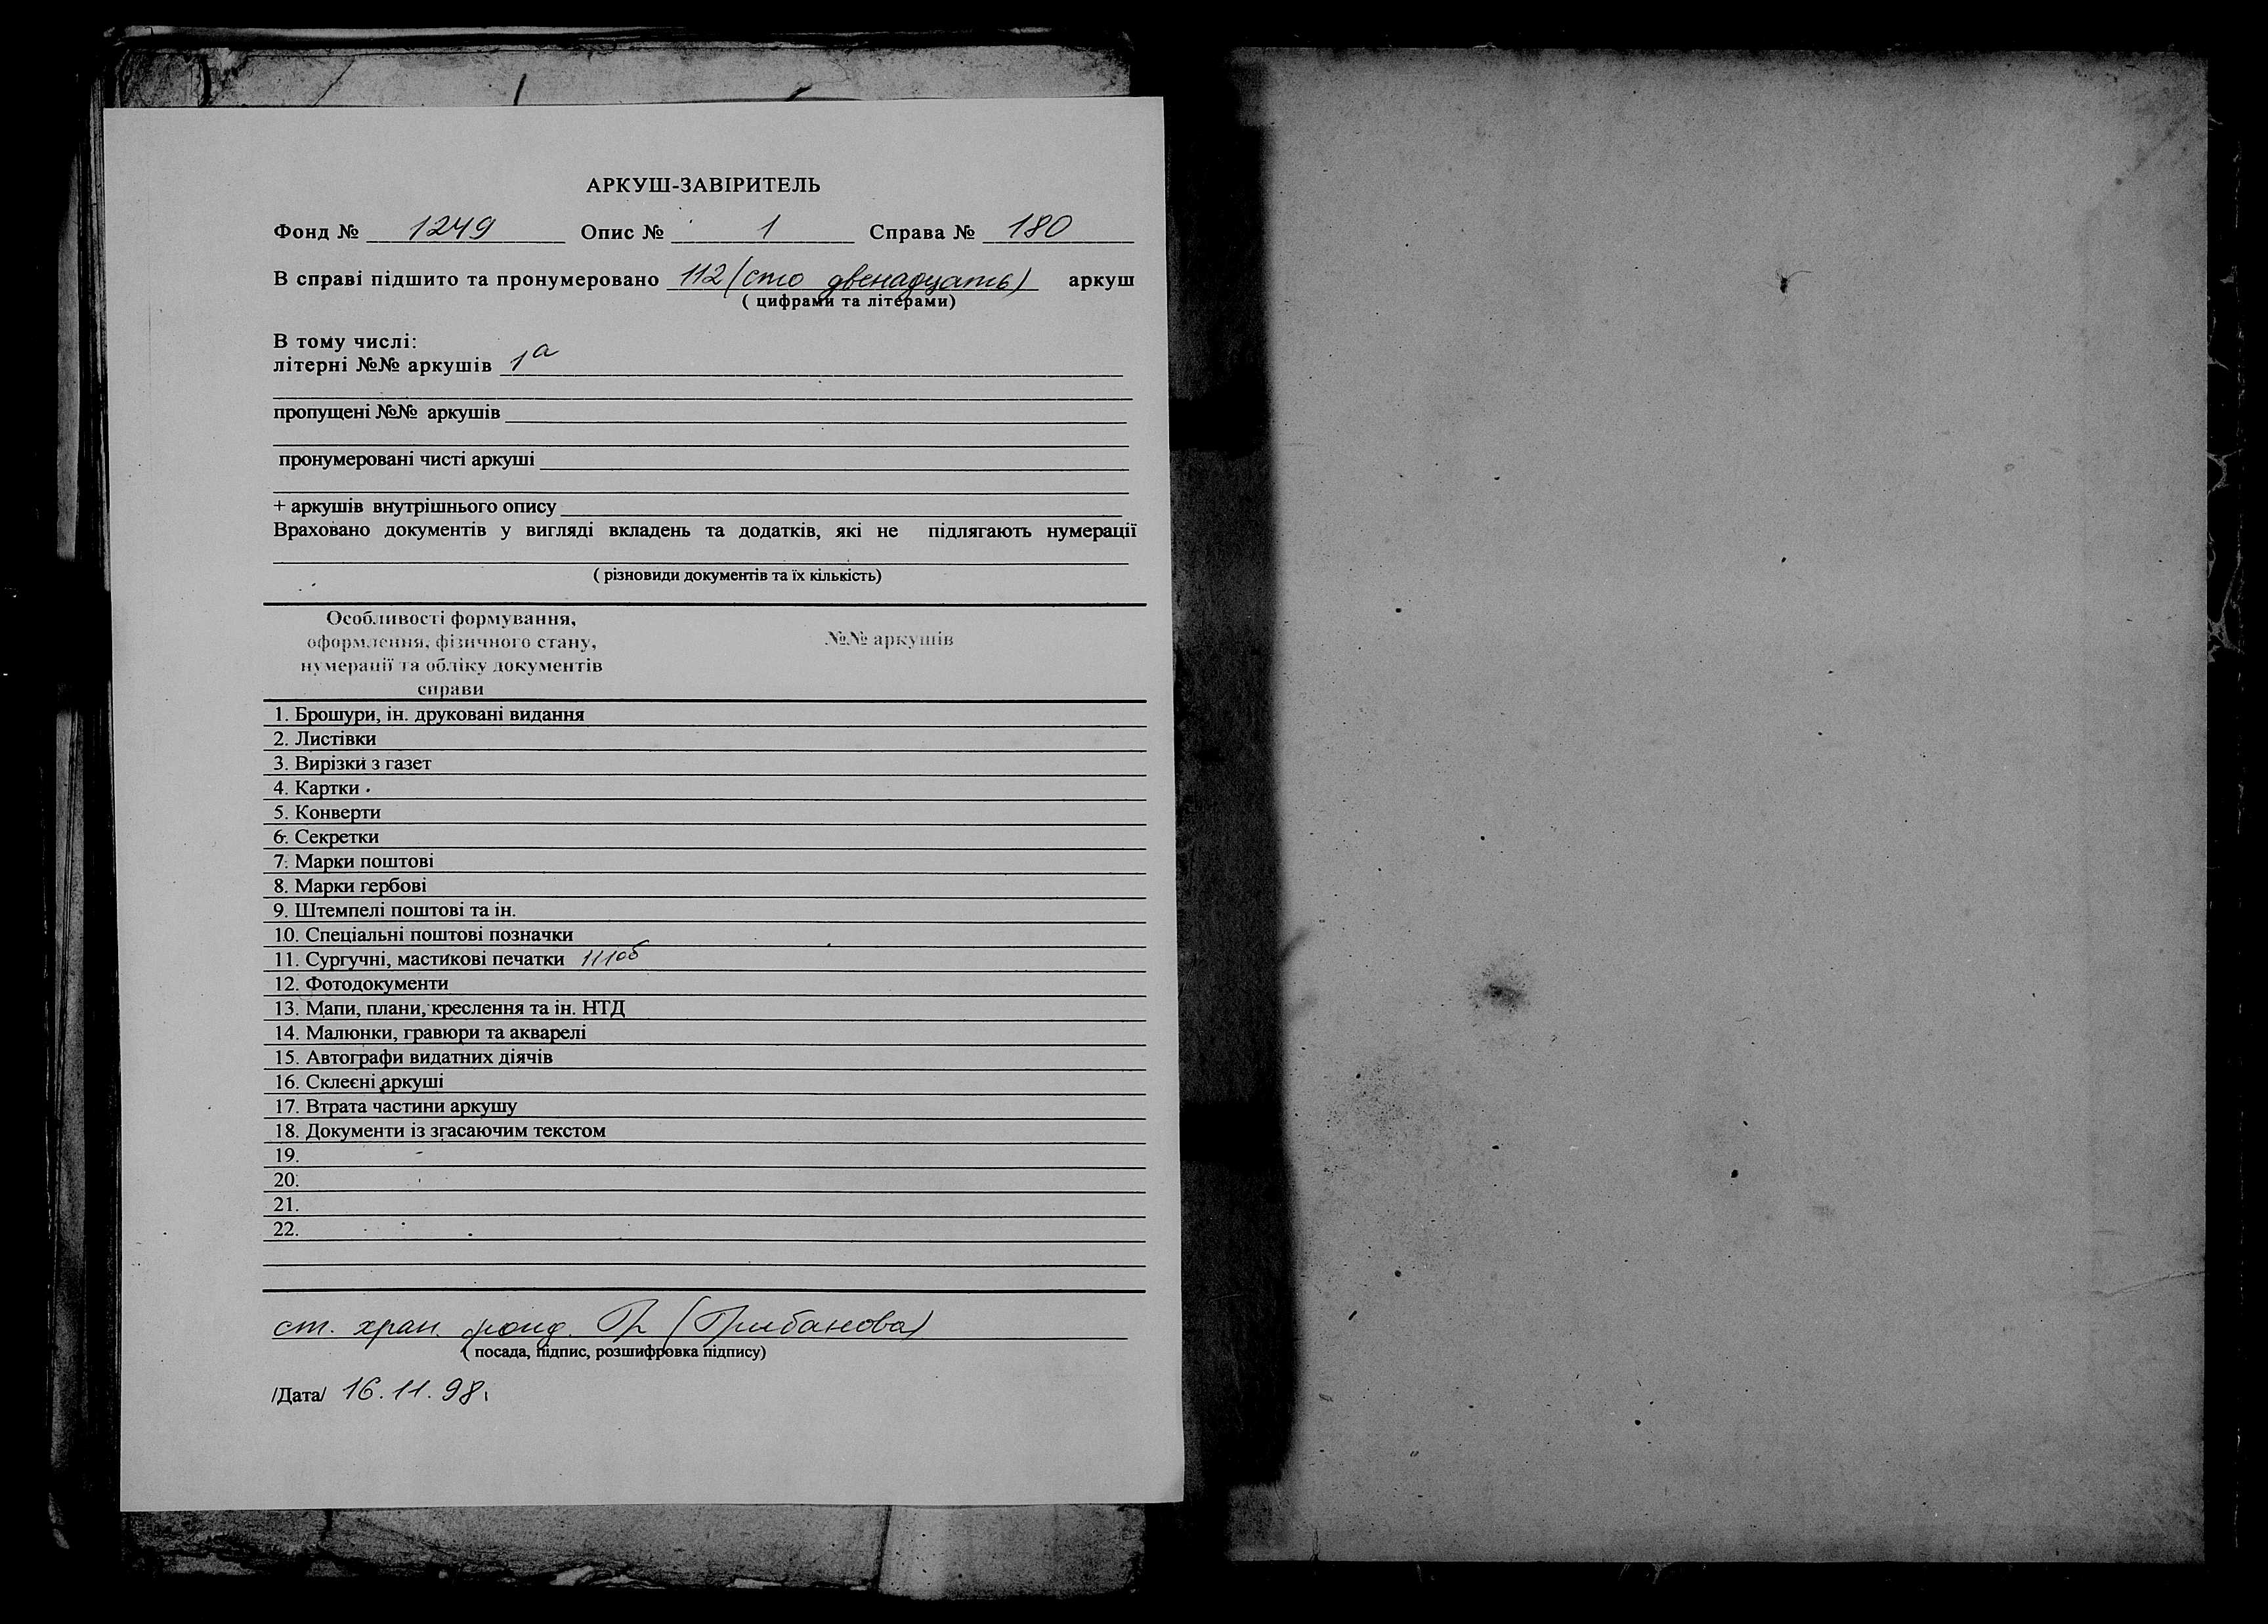 АРКУШ-ЗАВІРИТЕЛЬ
Фонд № 1249 Опис № 1 Справа № 180
В справі підшито та пронумеровано 112 (сто двенадцать) аркуш
( цифрами та літерами)
В тому числі:
літерні №№ аркушів 1а
пропущені №№ аркушів
пронумеровані чисті аркуші
+ аркушів внутрішнього опису
Враховано документів у вигляді вкладень та додатків, які не підлягають нумерації
( різновиди документів та їх кількість)
Особливості формування,
оформлення, фізичного стану,
нумерації та обліку документів
справи
№№ аркушів
1. Брошури, ін. друковані видання
2. Листівки
3. Вирізки з газет
4. Картки
5. Конверти
6. Секретки
7. Марки поштові
8. Марки гербові
9. Штемпелі поштові та ін.
10. Спеціальні поштові позначки
11. Сургучні, мастикові печатки 111об
12. Фотодокументи
13. Мапи, плани, креслення та ін. НТД
14. Малюнки, гравюри та акварелі
15. Автографи видатних діячів
16. Склеєні аркуші
17. Втрата частини аркушу
18. Документи із згасаючим текстом
19.
20.
21.
22.
ст. хран. фонд. (Грибанова)
( посада, підпис, розшифровка підпису)
/Дата/ 16.11.98.